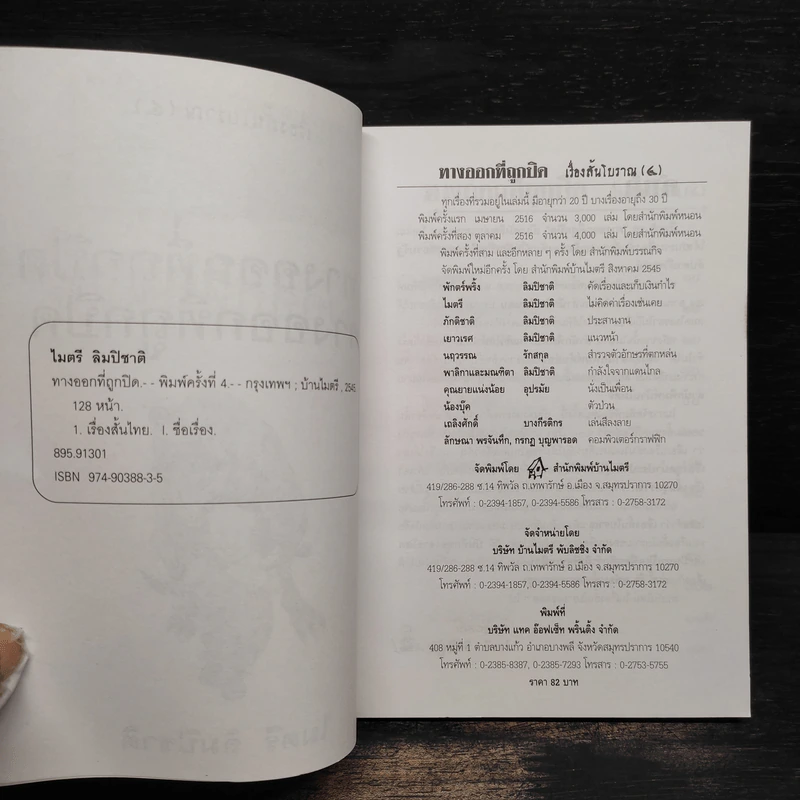 ไมตรี ลิมปิชาติ
ทางออกที่ถูกปิด.-- พิมพ์ครั้งที่ 4.-- กรุงเทพฯ ; บ้านไมตรี, 2545.
128 หน้า.
1. เรื่องสั้นไทย. I. ชื่อเรื่อง.
895.91301
ISBN 974-90388-3-5
ทางออกที่ถูกปิด เรื่องสั้นโบราณ (๔)
ทุกเรื่องที่รวมอยู่ในเล่มนี้ มีอายุกว่า 20 ปี บางเรื่องอายุถึง 30 ปี
พิมพ์ครั้งแรก เมษายน 2516 จำนวน 3,000 เล่ม โดยสำนักพิมพ์หนอน
พิมพ์ครั้งที่สอง ตุลาคม 2516 จำนวน 4,000 เล่ม โดยสำนักพิมพ์หนอน
พิมพ์ครั้งที่สาม และอีกหลาย ๆ ครั้ง โดย สำนักพิมพ์บรรณกิจ
จัดพิมพ์ใหม่อีกครั้ง โดย สำนักพิมพ์บ้านไมตรี สิงหาคม 2545
พักตร์พริ้ง ลิมปิชาติ คัดเรื่องและเก็บเงินกำไร
ไมตรี ลิมปิชาติ ไม่คิดค่าเรื่องเช่นเคย
ภักดิชาติ ลิมปิชาติ ประสานงาน
เยาวเรศ ลิมปิชาติ แนวหน้า
นฤวรรณ รักสกุล สำรวจตัวอักษรที่ตกหล่น
พาลิกาและมณฑิตา ลิมปิชาติ กำลังใจจากแดนไกล
คุณยายแน่งน้อย อุปรมัย นั่งเป็นเพื่อน
น้องบุ๊ค ตัวป่วน
เถลิงศักดิ์ บางกีรติกร เล่นสีลงลาย
ลักษณา พรจันทึก, กรกฎ บุญพารอด คอมพิวเตอร์กราฟฟิก
จัดพิมพ์โดย สำนักพิมพ์บ้านไมตรี
419/286-288 ซ.14 ทิพวัล ถ.เทพารักษ์ อ.เมือง จ.สมุทรปราการ 10270
โทรศัพท์ : 0-2394-1857, 0-2394-5586 โทรสาร : 0-2758-3172
จัดจำหน่ายโดย
บริษัท บ้านไมตรี พับลิชชิ่ง จำกัด
419/286-288 ซ.14 ทิพวัล ถ.เทพารักษ์ อ.เมือง จ.สมุทรปราการ 10270
โทรศัพท์ : 0-2394-1857, 0-2394-5586 โทรสาร : 0-2758-3172
พิมพ์ที่
บริษัท แทค อ๊อฟเซ็ท พริ้นติ้ง จำกัด
408 หมู่ที่ 1 ตำบลบางแก้ว อำเภอบางพลี จังหวัดสมุทรปราการ 10540
โทรศัพท์ : 0-2385-8387, 0-2385-7293 โทรสาร : 0-2753-5755
ราคา 82 บาท